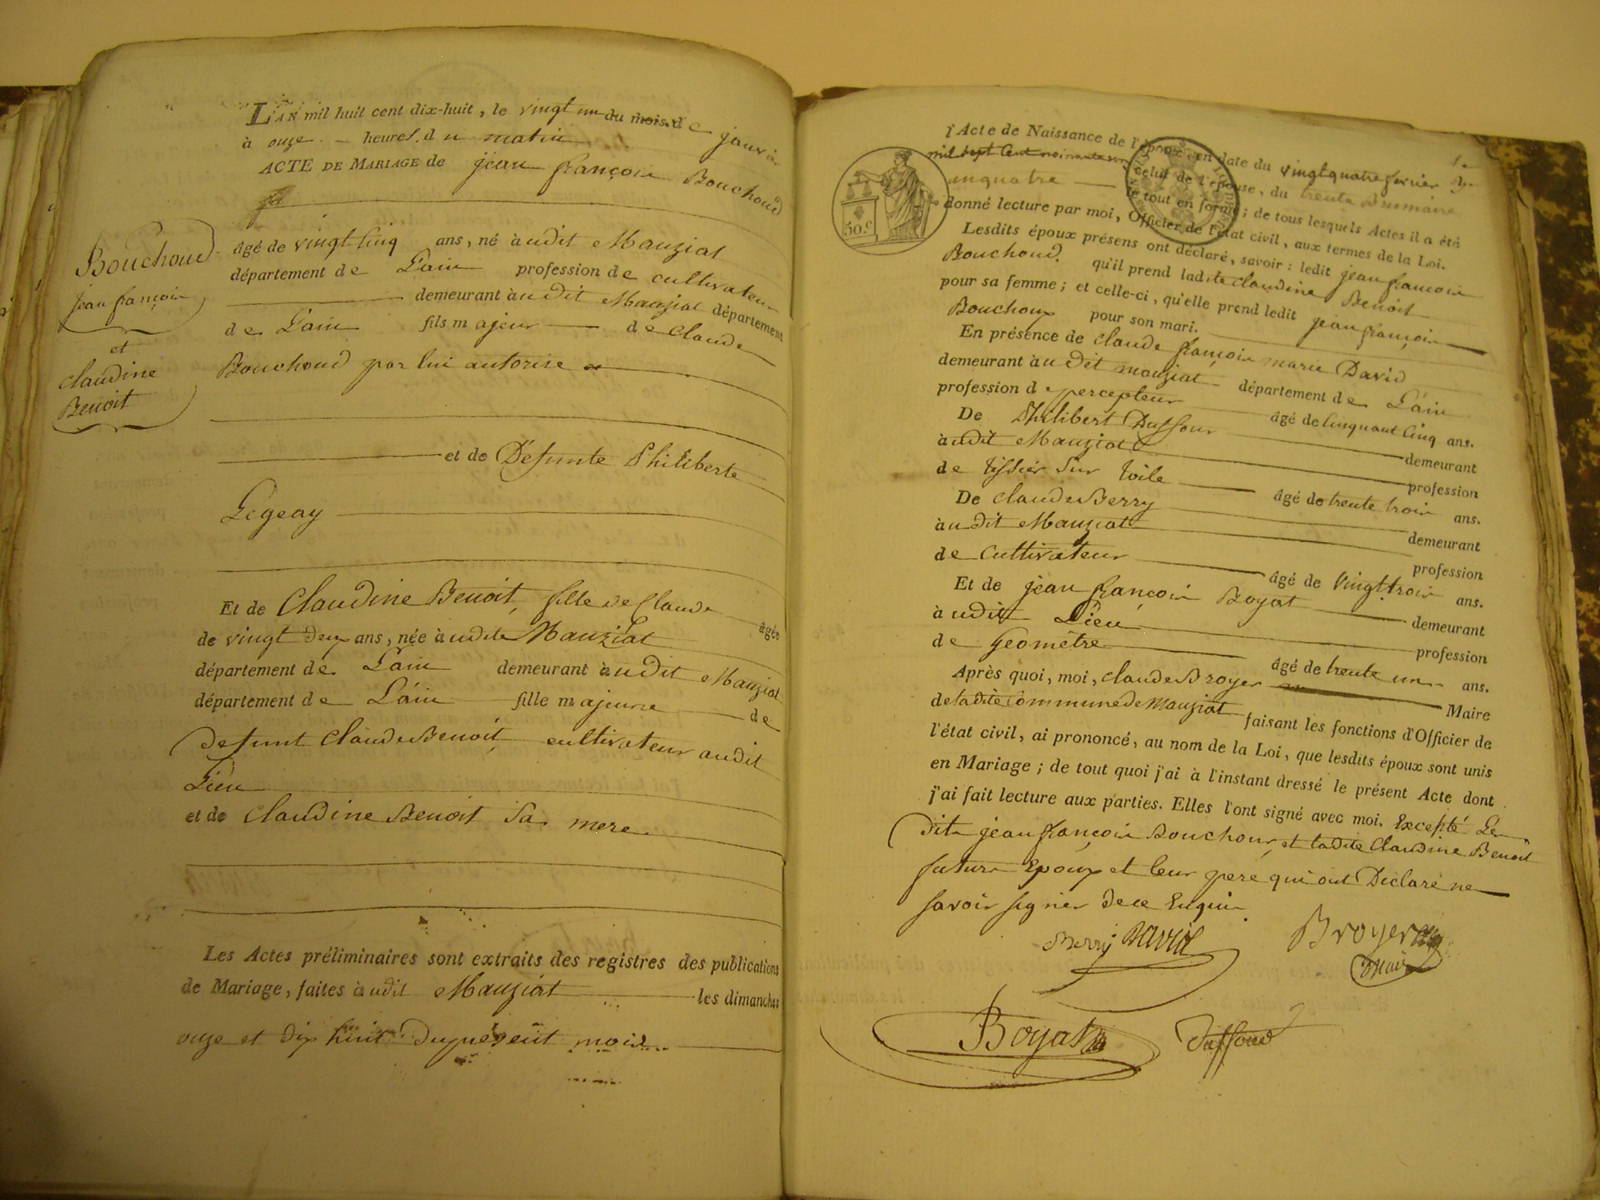 L'AN mil huit cent dix-huit, le vingt un du mois de janvier
à onze heures du matin
ACTE DE MARIAGE de jean françois Bouchoud
Bouchoud
jean françois
et
claudine
Benoit
âgé de vingt cinq ans, né àudit Mauziat
département de L'ain profession de cultivateur
demeurant àu dit Mauziat département
de L'ain fils majeur de Claude
Bouchoud par lui autorise
et de Défunte Philiberte
Legeay
Et de Claudine Benoit, fille de Claude âgée
de vingt deux ans, née àudit Mauziat
département de L'ain demeurant àudit Mauziat
département de L'ain fille majeure de
defunt Claude Benoit, cultivateur audit
Lieu
et de Claudine Benoit Sa mere
Les Actes préliminaires sont extraits des registres des publications
de Mariage, faites àudit Mauziat les dimanches
onze et dix huit du présent mois
l'Acte de Naissance de l'époux en date du vingt quatre fevrier
mil sept cent
celui de l'épouse, du trente Brumaire
an quatre
le tout en forme; de tous lesquels Actes il a été
donné lecture par moi, Officier de l'état civil, aux termes de la Loi.
50.c
Lesdits époux présens ont déclaré, savoir: ledit jean francois
Bouchoud. qu'il prend ladite claudine Benoit
pour sa femme; et celle-ci, qu'elle prend ledit jean françois
Bouchoux pour son mari.
En présence de claude françois marie David
demeurant àu dit mauziat département de L'ain
profession de percepteur âgé de cinquant cinq ans.
De Philibert Duffour demeurant
àudit Mauziat profession
de tissier sur toile âgé de trente trois ans.
De claude Berry demeurant
àu dit Mauziat profession
de cultivateur âgé de vingt trois ans.
Et de jean françois Boyat demeurant
àudit Lieu profession
de Geomètre âgé de trente un ans.
Après quoi, moi, claude Broyer Maire
de ladite commune de Mauziat faisant les fonctions d'Officier de
l'état civil, ai prononcé, au nom de la Loi, que lesdits époux sont unis
en Mariage; de tout quoi j'ai à l'instant dressé le présent Acte dont
j'ai fait lecture aux parties. Elles l'ont signé avec moi. Excepté Le
dit jean françois Bouchoux, et ladite Claudine Benoit
futurs Epoux et leur père qui ont Déclaré ne
savoir signer de ce Enquis
Berry David Broyer
Maire
Boyat Duffour